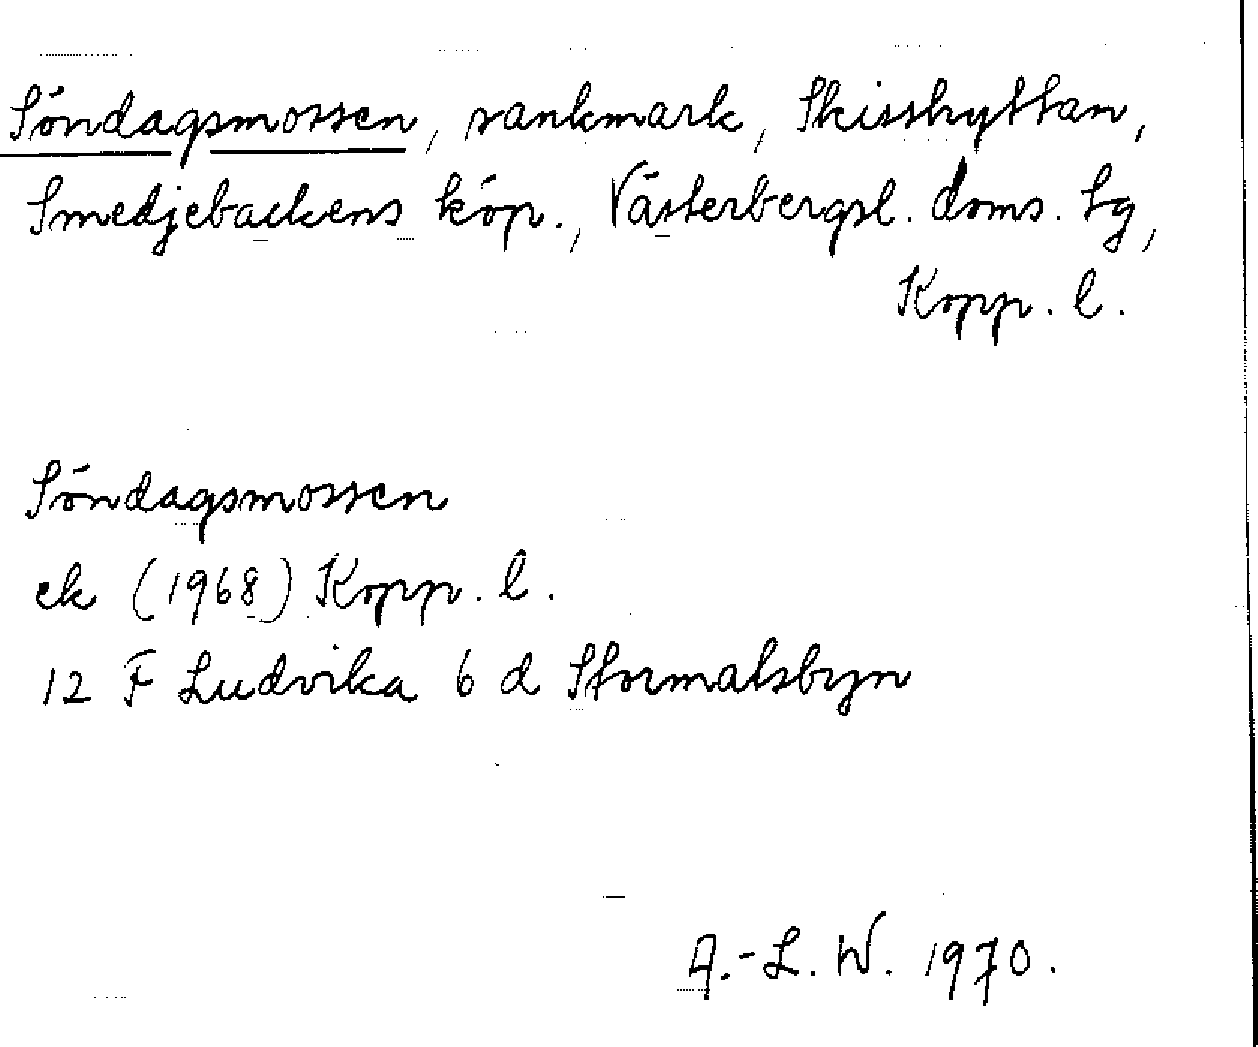 Söndagsmossen, sankmark, Skisshyttan,
Smedjebackens köp., Västerbergsl. doms. tg,
Kopp. l.
Söndagsmossen
ek (1968) Kopp. l.
12 F Ludvika 6 d Stormalsbyn
A.-L. W. 1970.